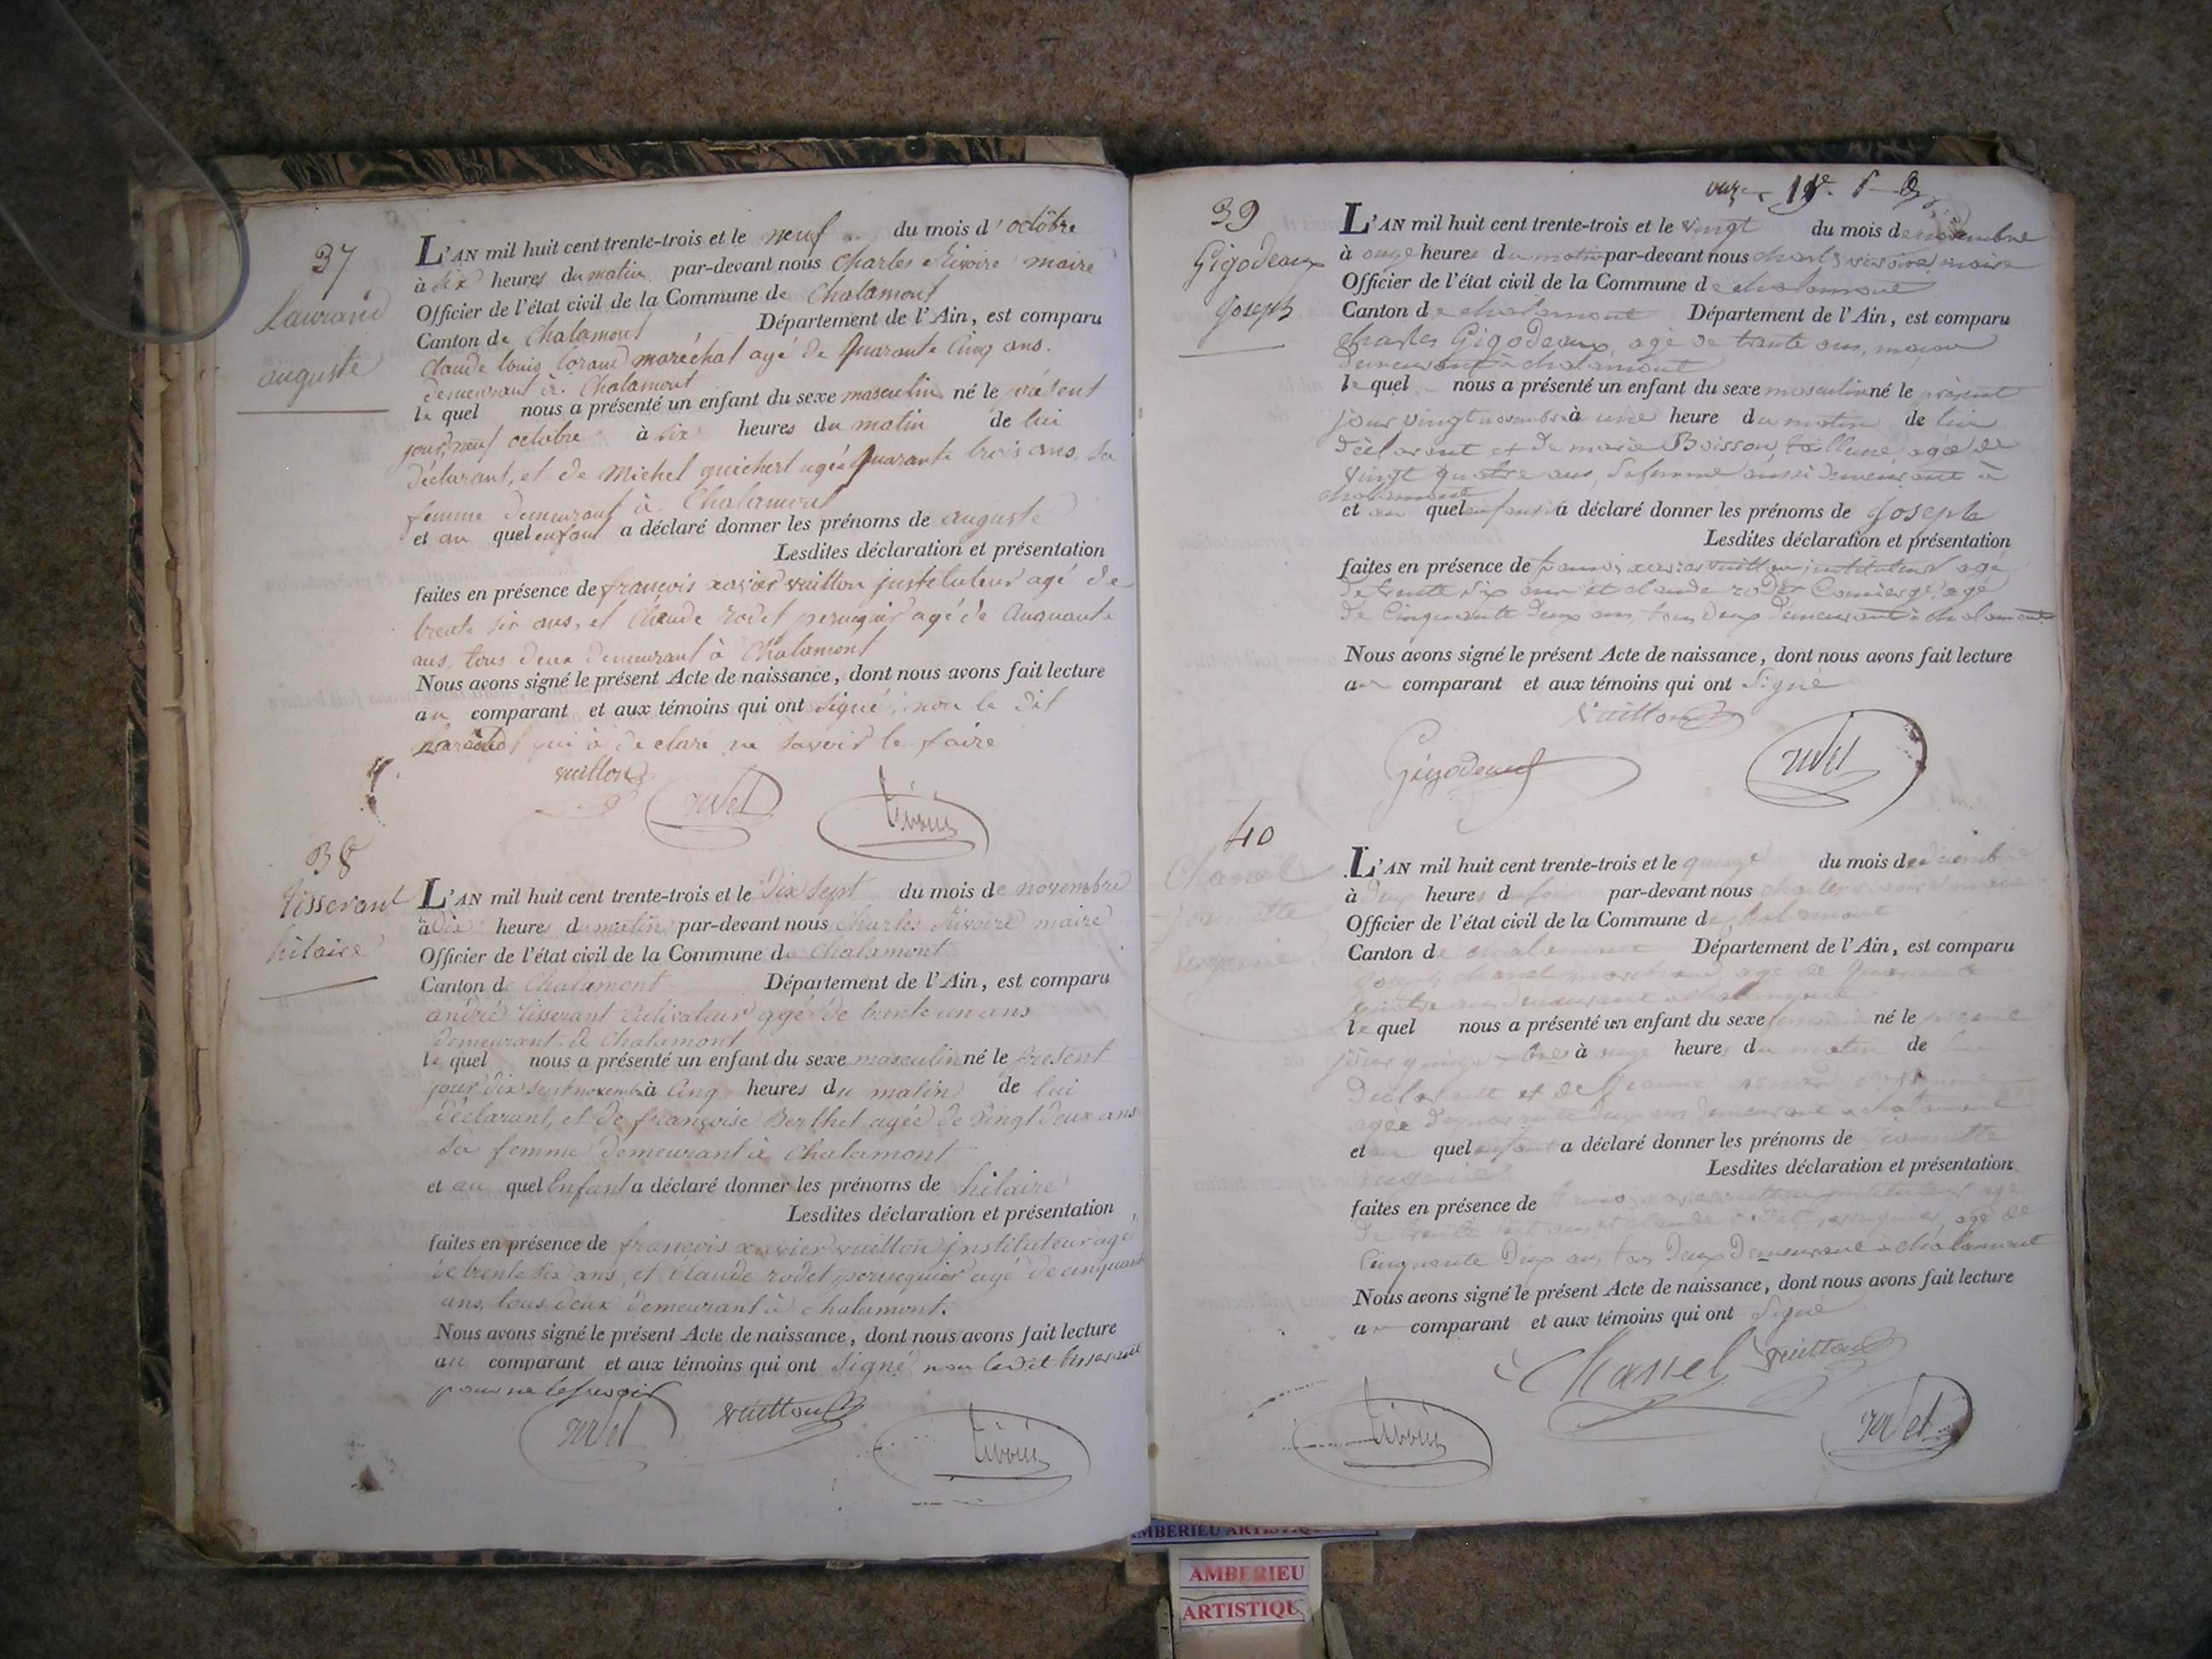 37
Laurand
auguste
L'AN mil huit cent trente-trois et le neuf du mois d'octôbre
à dix heures du matin par-devant nous Charles Rivoire maire
Officier de l'état civil de la Commune de Chalamont
Canton de Chalamont Département de l'Ain, est comparu
Claude louis loraud maréchal agé de Quarante Cinq ans.
demeurant à Chalamont
le quel nous a présenté un enfant du sexe masculin né le présent
jour, neuf octobre à six heures du matin de lui
déclarant, et de Michel guichert agée Quarante trois ans, sa
femme demeurant à Chalamont
et au quel enfant a déclaré donner les prénoms de auguste
Lesdites déclaration et présentation
faites en présence de françois xavier vuitton jnstituteur agé de
trente six ans, et Claude rodet peruquier agé de Cinquante
ans, tous deux demeurant à Chalamont
Nous avons signé le présent Acte de naissance, dont nous avons fait lecture
au comparant et aux témoins qui ont signé, non le dit
qui à declaré ne savoir le faire
vuitton
rodet
Rivoire
38
tisserant
hilaire
L'AN mil huit cent trente-trois et le Dix sept du mois de novembre
à Dix heures du matin par-devant nous Charles Rivoire maire
Officier de l'état civil de la Commune de Chalamont
Canton de Chalamont Département de l'Ain, est comparu
andré tisserant Cultivateur agé de trente un ans
demeurant à Chalamont
le quel nous a présenté un enfant du sexe masculin né le présent
jour dix sept novembre à Cinq heures du matin de lui
déclarant, et de françoise Berthet agée de vingt deux ans
sa femme demeurant à Chalamont
et au quel Enfant a déclaré donner les prénoms de hilaire
Lesdites déclaration et présentation
faites en présence de françois xavier vuitton jnstituteur agé
de trente six ans, et Claude rodet peruquier agé de cinquante
ans, tous deux demeurant à Chalamont.
Nous avons signé le présent Acte de naissance, dont nous avons fait lecture
au comparant et aux témoins qui ont signé non ledit tisserant
pour ne le savoir
rodet
vuitton
Rivoire
39
Gigodeaux
Joseph
L'AN mil huit cent trente-trois et le vingt du mois de novembre
à onze heures du matin par-devant nous charles rivoire maire
Officier de l'état civil de la Commune de chalamont
Canton de chalamont Département de l'Ain, est comparu
charles Gigodeaux, agé de trante ans, maçon
demeurant à chalamont
le quel nous a présenté un enfant du sexe masculin né le présent
jour vingt novembre à une heure du matin de lui
déclarant et de marie Boisson, tailleuse, agée de
vingt quatre ans, sa femme aussi demeurante à
chalamont
et au quel enfant a déclaré donner les prénoms de Joseph
Lesdites déclaration et présentation
faites en présence de francois xavier vuitton jnstituteur agé
de trente six ans et claude rodet Concierge, agé
de Cinquante deux ans, tous deux demeurant à chalamont
Nous avons signé le présent Acte de naissance, dont nous avons fait lecture
au comparant et aux témoins qui ont signé
Vuitton
Gigodeaux
rodet
40
Chanel
L'AN mil huit cent trente-trois et le quinze du mois de décembre
à deux heures du soir par-devant nous charles rivoire maire
Officier de l'état civil de la Commune de chalamont
Canton de chalamont Département de l'Ain, est comparu
Joseph chanel marchand agé de quarante
quatre ans demeurant à chalamont
le quel nous a présenté un enfant du sexe feminin né le présent
jour quinze à onze heures du matin de lui
Déclarant et de Jeanne
agée de quarante deux ans demeurant à chalamont
et au quel enfant a déclaré donner les prénoms de
Lesdites déclaration et présentation
faites en présence de francois xavier vuitton jnstituteur agé
de trente sept ans, et claude rodet peruquier, agé de
Cinquante Deux ans, tous Deux Demeurant à chalamont
Nous avons signé le présent Acte de naissance, dont nous avons fait lecture
au comparant et aux témoins qui ont signé
Chanel
Vuitton
Rivoire
rodet
AMBERIEU
ARTISTIQUE